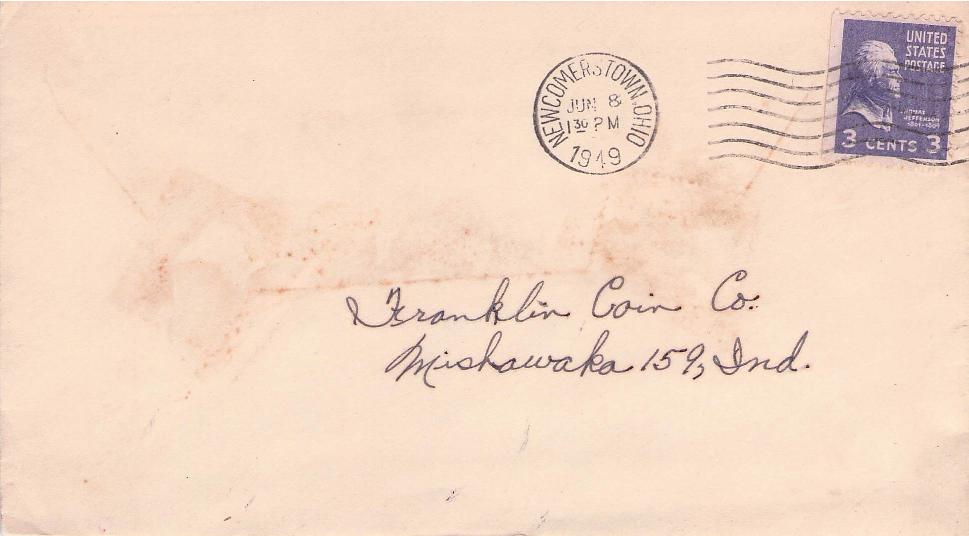 NEWCOMERSTOWN, OHIO
JUN 8
1 30 PM
1949
UNITED
STATES
POSTAGE
THOMAS
JEFFERSON
1801-1809
3 CENTS 3
Franklin Coin Co.
Mishawaka 159, Ind.